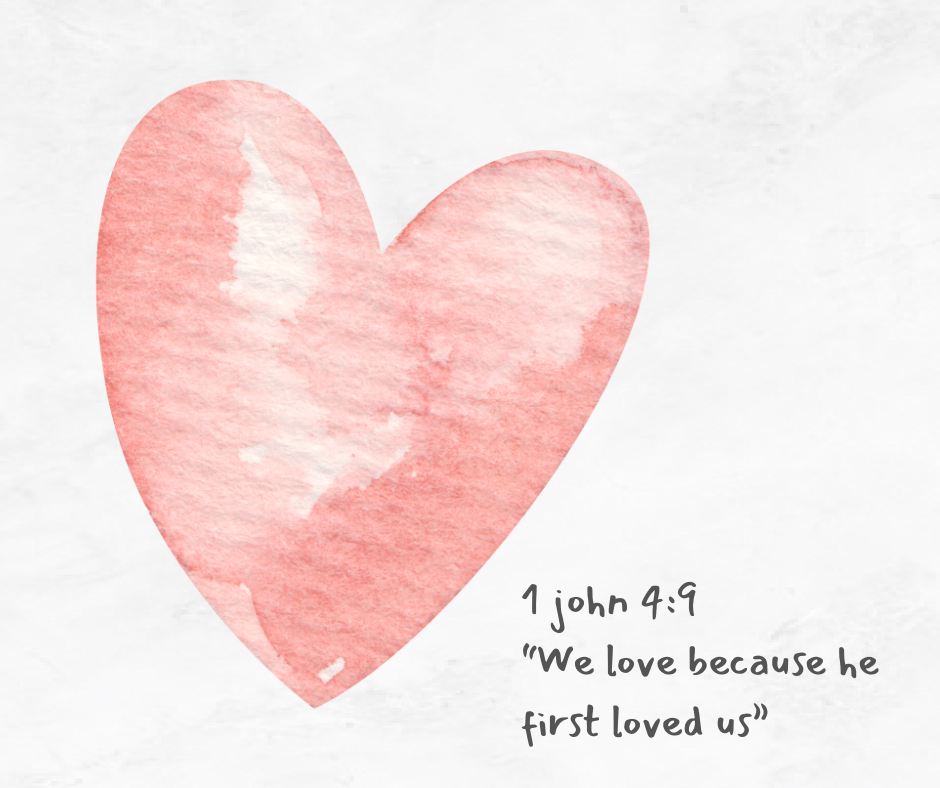 1 john 4:9
"We love because he
first loved us"